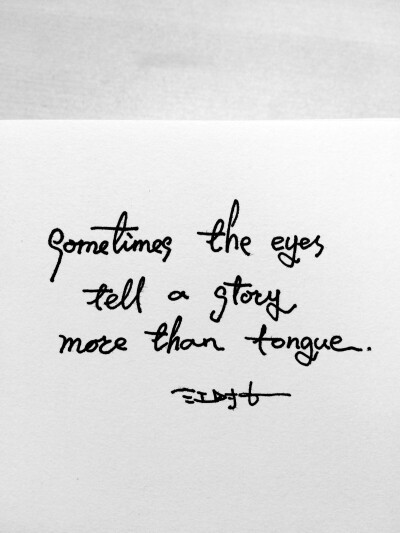 Sometimes the eyes
tell a story
more than tongue.